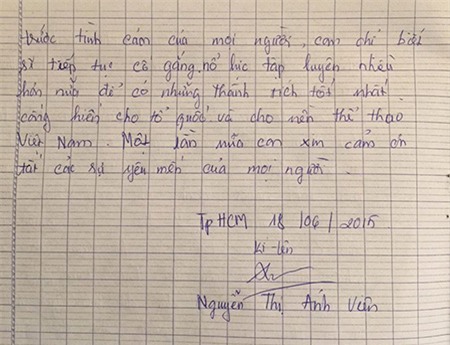 trước tình cảm của mọi người, con chỉ biết
sẽ tiếp tục cố gắng nổ lực tập luyện nhiều
hơn nữa để có những thành tích tốt nhất
cống hiến cho tổ quốc và cho nền thể thao
Việt Nam. Một lần nữa con xin cảm ơn
tất cả sự yêu mến của mọi người.
Tp HCM 18 / 06 / 2015
Kí tên
Nguyễn Thị Ánh Viên